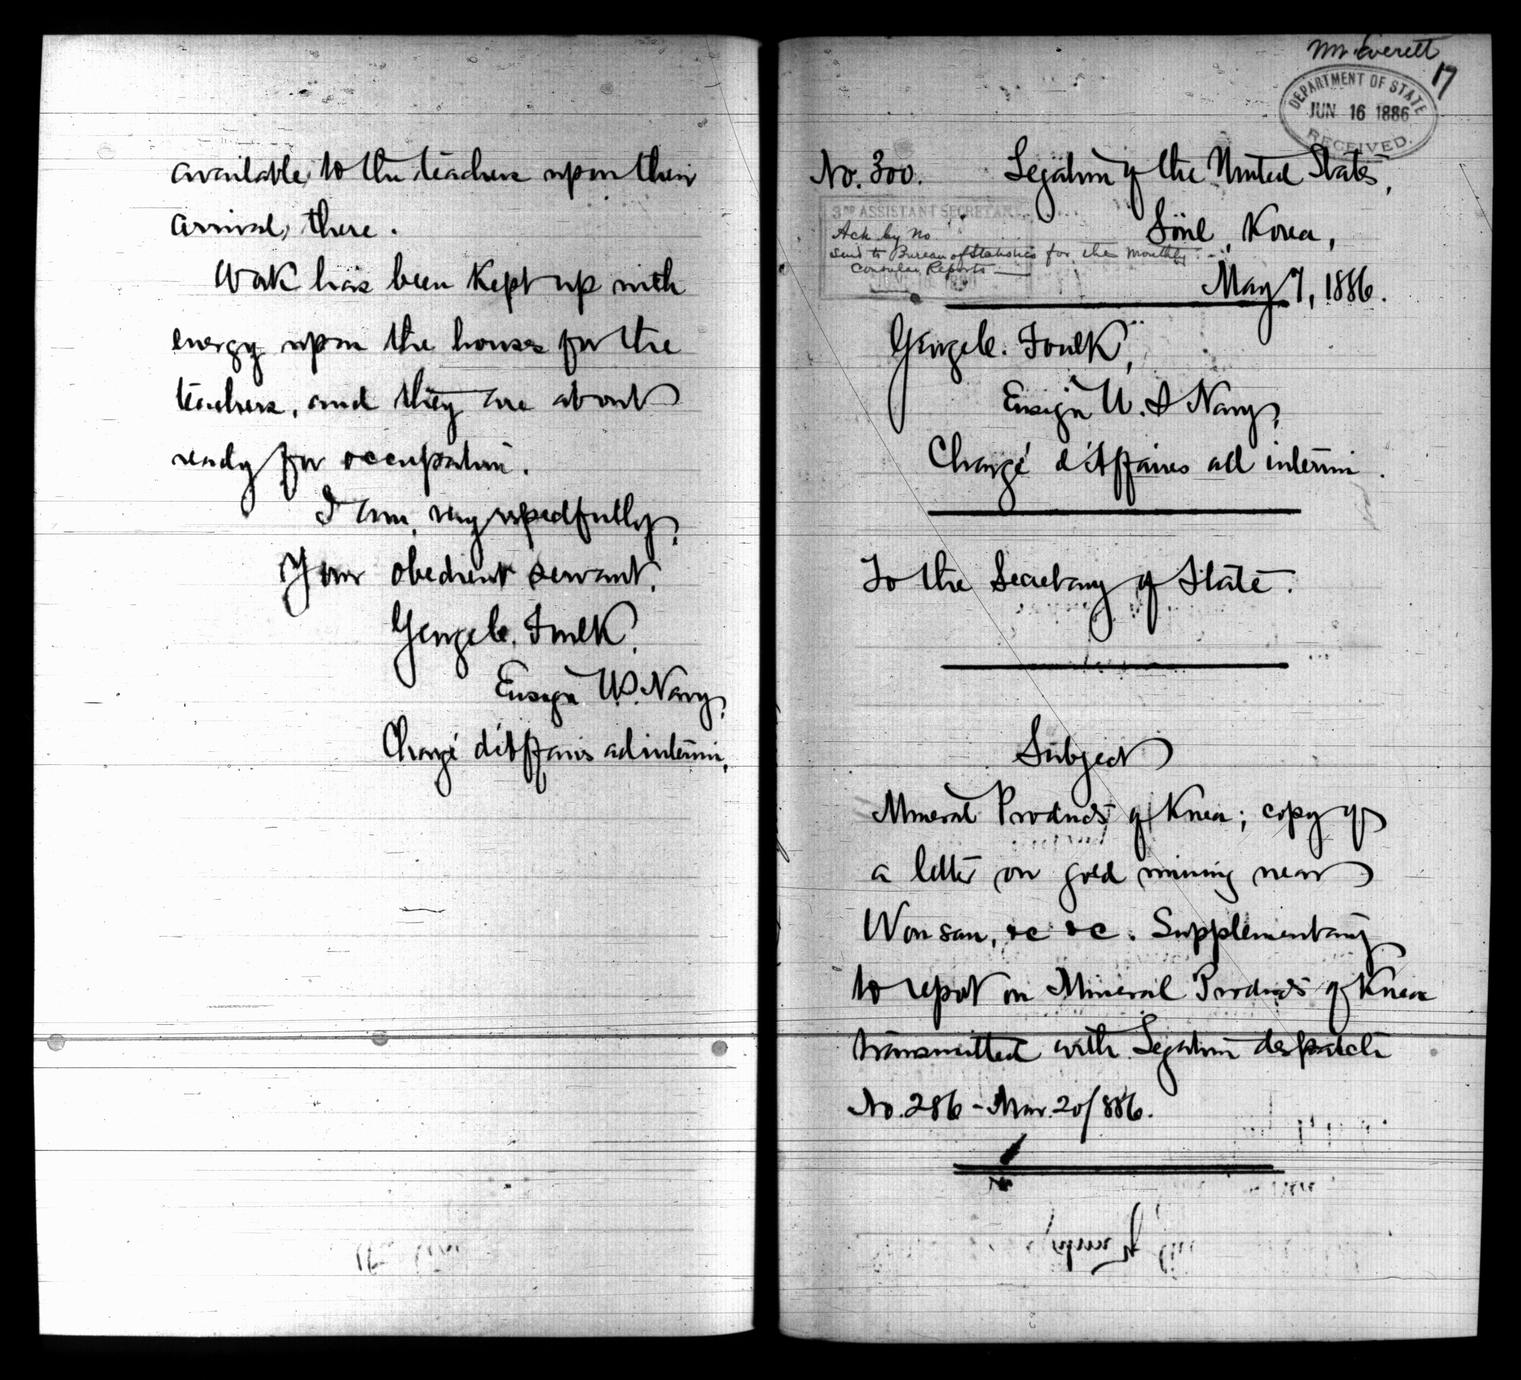 available, to the teachers upon their
arrival, there.
Work has been kept up with
energy upon the houses for the
teachers, and they are about
ready for occupation.
I am, very respectfully,
Your obedient servant,
George C. Foulk,
Ensign U.S. Navy,
Chargé d'Affaires ad interim.
Mr Everett
17
DEPARTMENT OF STATE
JUN 16 1886
RECEIVED.
No. 300. Legation of the United States,
Söul, Korea,
May 7, 1886.
3RD ASSISTANT SECRETARY
Ack by No
Send to Bureau of Statistics for the Monthly
Consular Reports —
George C. Foulk,
Ensign U.S. Navy,
Chargé d'Affaires ad interim.
To the Secretary of State.
Subject
Mineral Products of Korea; copy of
a letter on gold mining near
Wonsan, &c &c. Supplementary
to report on Mineral Products of Korea
transmitted with Legation despatch
No. 286 - Mar. 20/886.